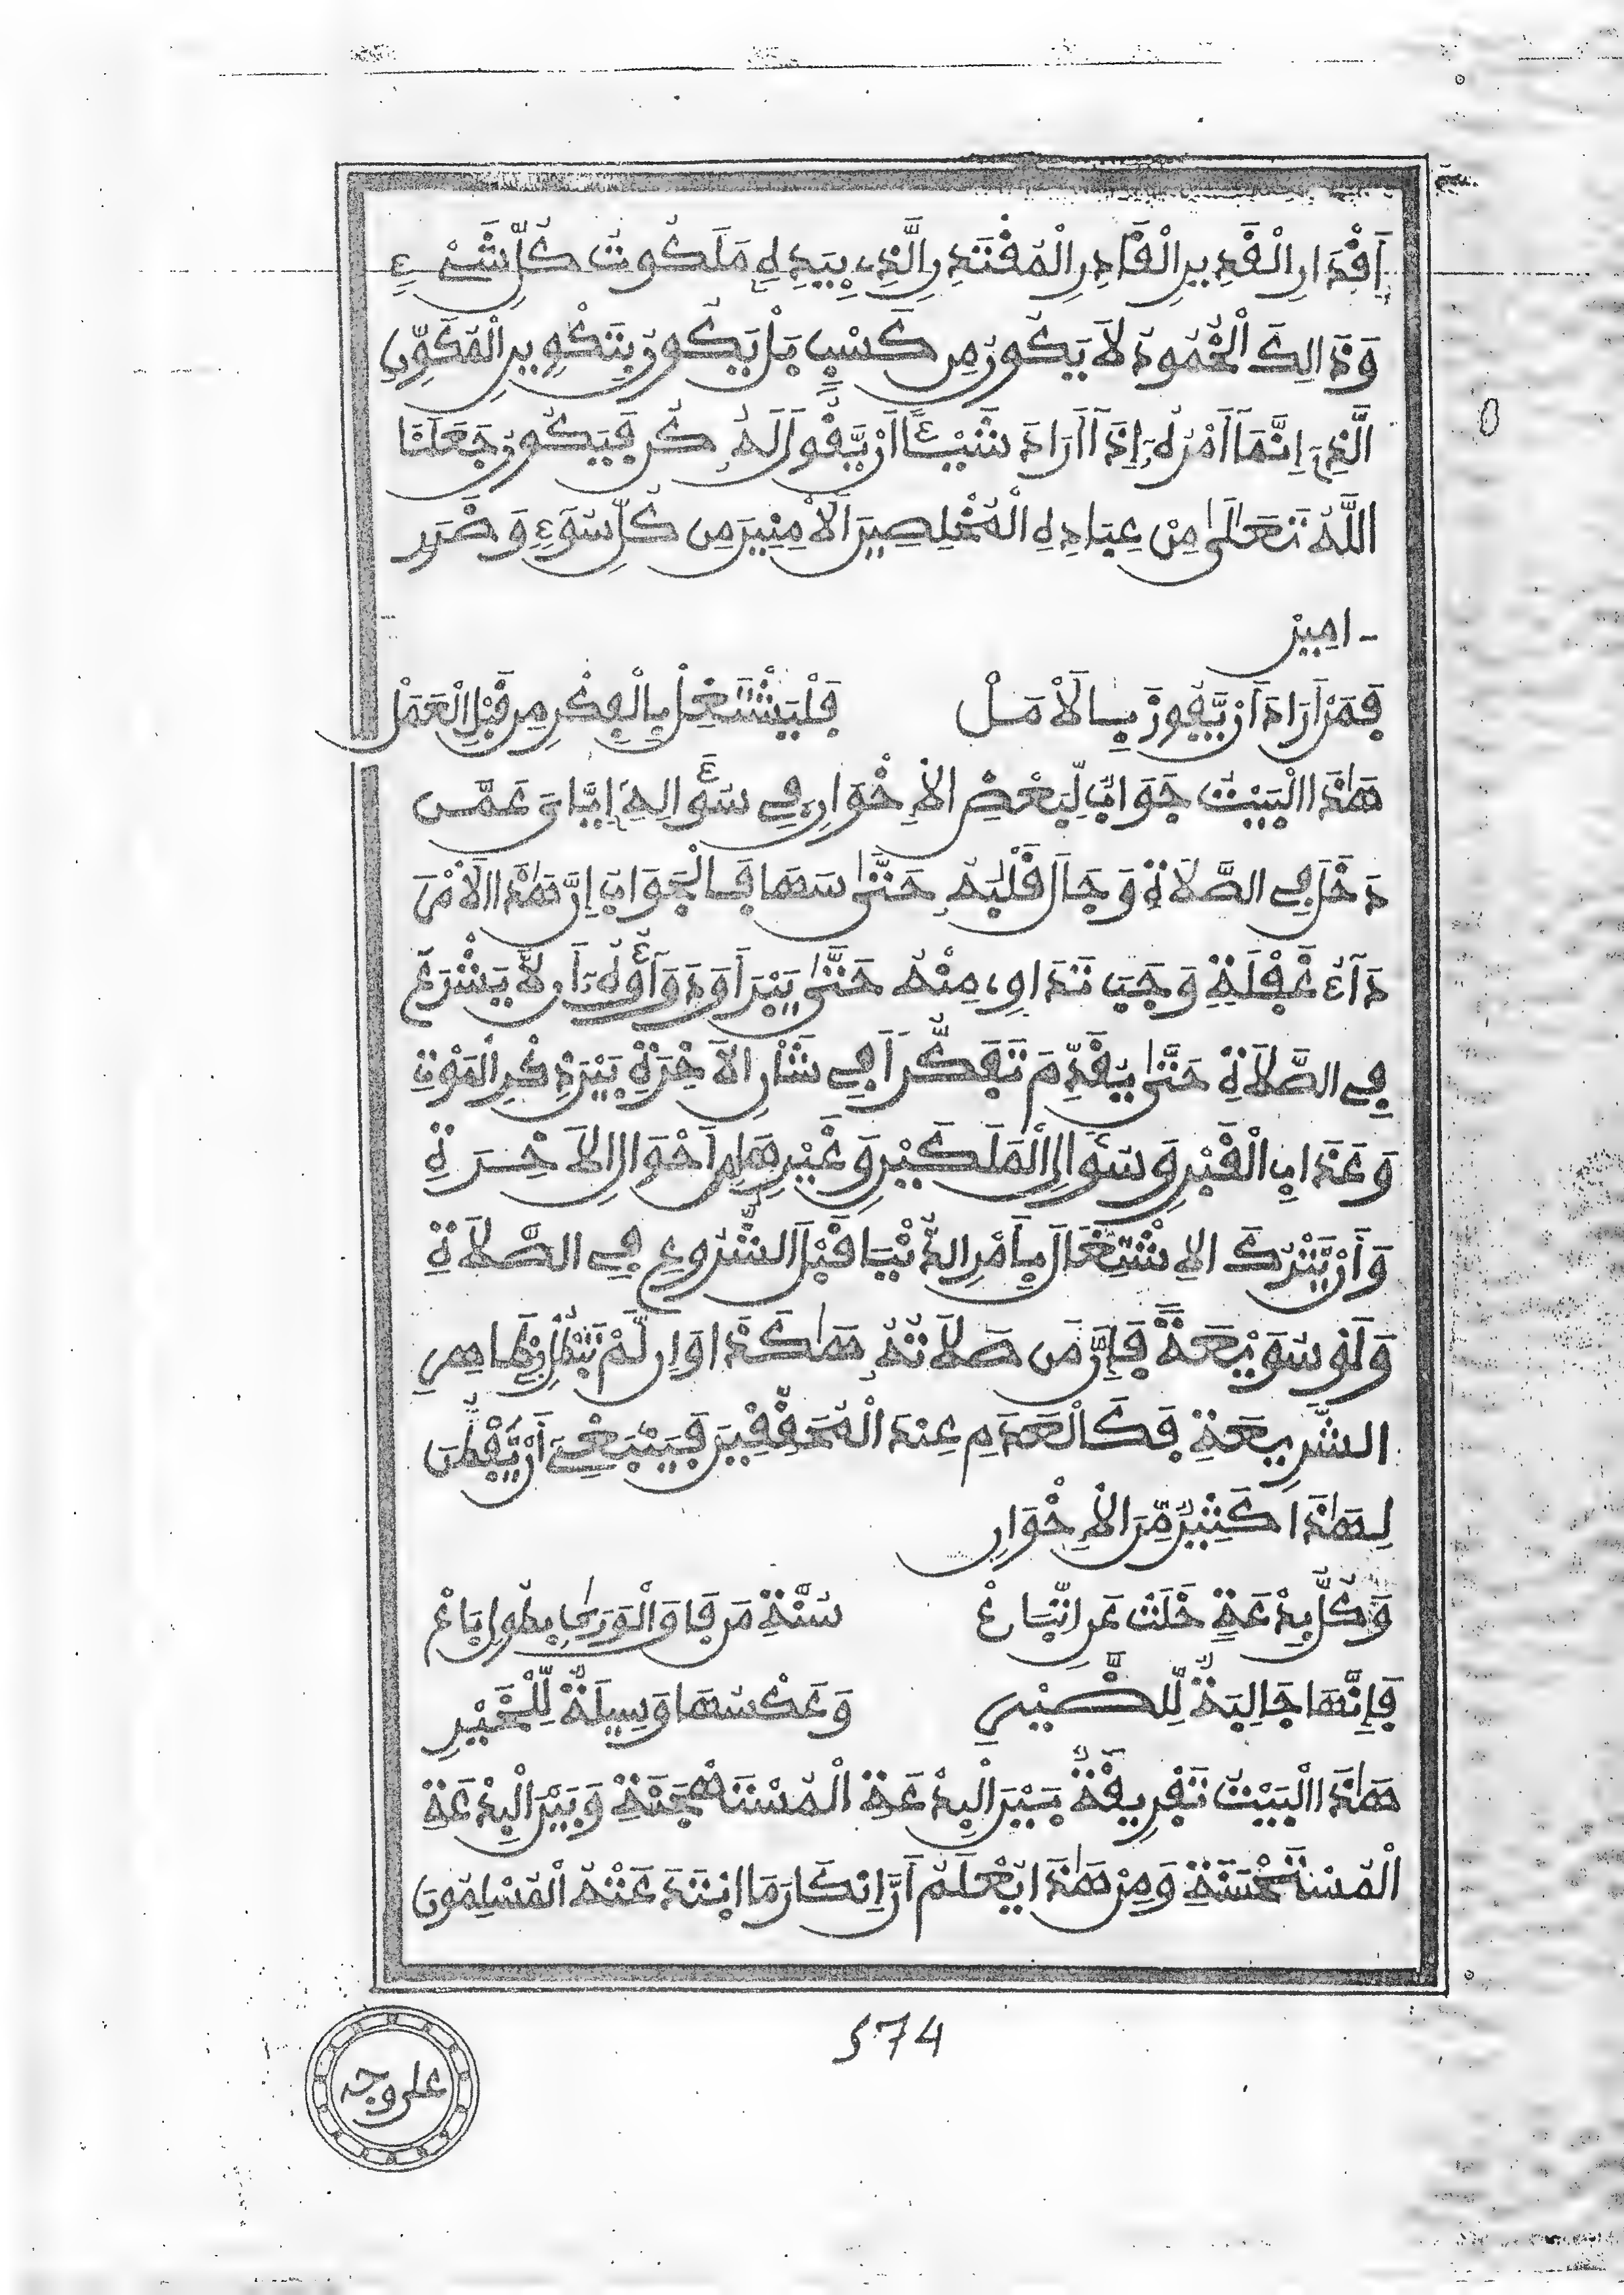 اَقْدَارِ الْقَدِيرِ الْقَادِرِ الْمُقْتَدِرِ الَّذِي بِيَدِهِ مَلَكُوتُ كُلِّ شَيْءٍ
وَذَالِكَ الْخُمُودُ لاَ يَكُونُ مِن كَسْبٍ بَلْ يَكُونُ بِتَكْوِينِ الْمُكَوِّنِ
الَّذِي إِنَّمَا أَمْرُهُ إِذَا أَرَادَ شَيْئًا أَنْ يَّقُولَ لَهُ كُن فَيَكُونُ جَعَلَنَا
اللَّهُ تَعَالَىٰ مِنْ عِبَادِهِ الْمُخْلِصِينَ الْاٰمِنِينَ مِن كُلِّ سُوءٍ وَضَرَرٍ
ـ امِينْ
فَمَنْ أَرَادَ أَنْ يَّفُوزَ بِالْأَمَلْ فَلْيَشْتَغِلْ بِالْفِكْرِ مِن قَبْلِ الْعَمَلْ
هَٰذَا الْبَيْتُ جَوَابٌ لِّبَعْضِ الْإِخْوَانِ فِي سُؤَالِهِ إِيَّايَ عَمَّن
دَخَلَ فِي الصَّلَاةِ وَجَالَ قَلْبُهُ حَتَّىٰ سَهَا فَالْجَوَابُ إِنَّ هَٰذَا الْأَمْرَ
دَآءُ غَفْلَةٍ وَجَبَ تَدَاوٍ مِنْهُ حَتَّىٰ يَبْرَأَ وَدَوَآؤُهُ أَن لاَّ يَشْرَعَ
فِي الصَّلَاةِ حَتَّىٰ يُقَدِّمَ تَفَكُّرًا فِي شَأْنِ الْآخِرَةِ بَيْنَ ذِكْرِ الْمَوْتِ
وَعَذَابِ الْقَبْرِ وَسُؤَالِ الْمَلَكَيْنِ وَغَيْرِهَا مِن أَحْوَالِ الْآخِرَةِ
وَأَنْ يَّتْرُكَ الْإِشْتِغَالَ بِأَمْرِ الدُّنْيَا قَبْلَ الشُّرُوعِ فِي الصَّلَاةِ
وَلَوْ سُوَيْعَةً فَإِنَّ مَن صَلَاتُهُ هَٰكَذَا وَإِن لَّمْ تَبْطُلْ بِظَاهِرِ
الشَّرِيعَةِ فَكَالْعَدَمِ عِنْدَ الْمُحَقِّقِينَ فَيَنْبَغِي أَنْ يَّفْطَنَ
لِهَٰذَا كَثِيرٌ مِّنَ الْإِخْوَانِ
وَكُلُّ بِدْعَةٍ خَلَتْ عَنِ اتِّبَاعْ سُنَّةِ مَن فَاقَ الْوَرَىٰ بِطُولِ بَاعْ
فَإِنَّهَا جَالِبَةٌ لِّلضَّيْرِ وَعَكْسُهَا وَسِيلَةٌ لِّلْخَيْرِ
هَٰذَا الْبَيْتُ تَفْرِيقَةٌ بَيْنَ الْبِدْعَةِ الْمُسْتَهْجَنَةِ وَبَيْنَ الْبِدْعَةِ
الْمُسْتَحْسَنَةِ وَمِنْ هَٰذَا يُعْلَمُ أَنَّ إِنْكَارَ مَا ابْتَدَعَتْهُ الْمُسْلِمُونَ
574